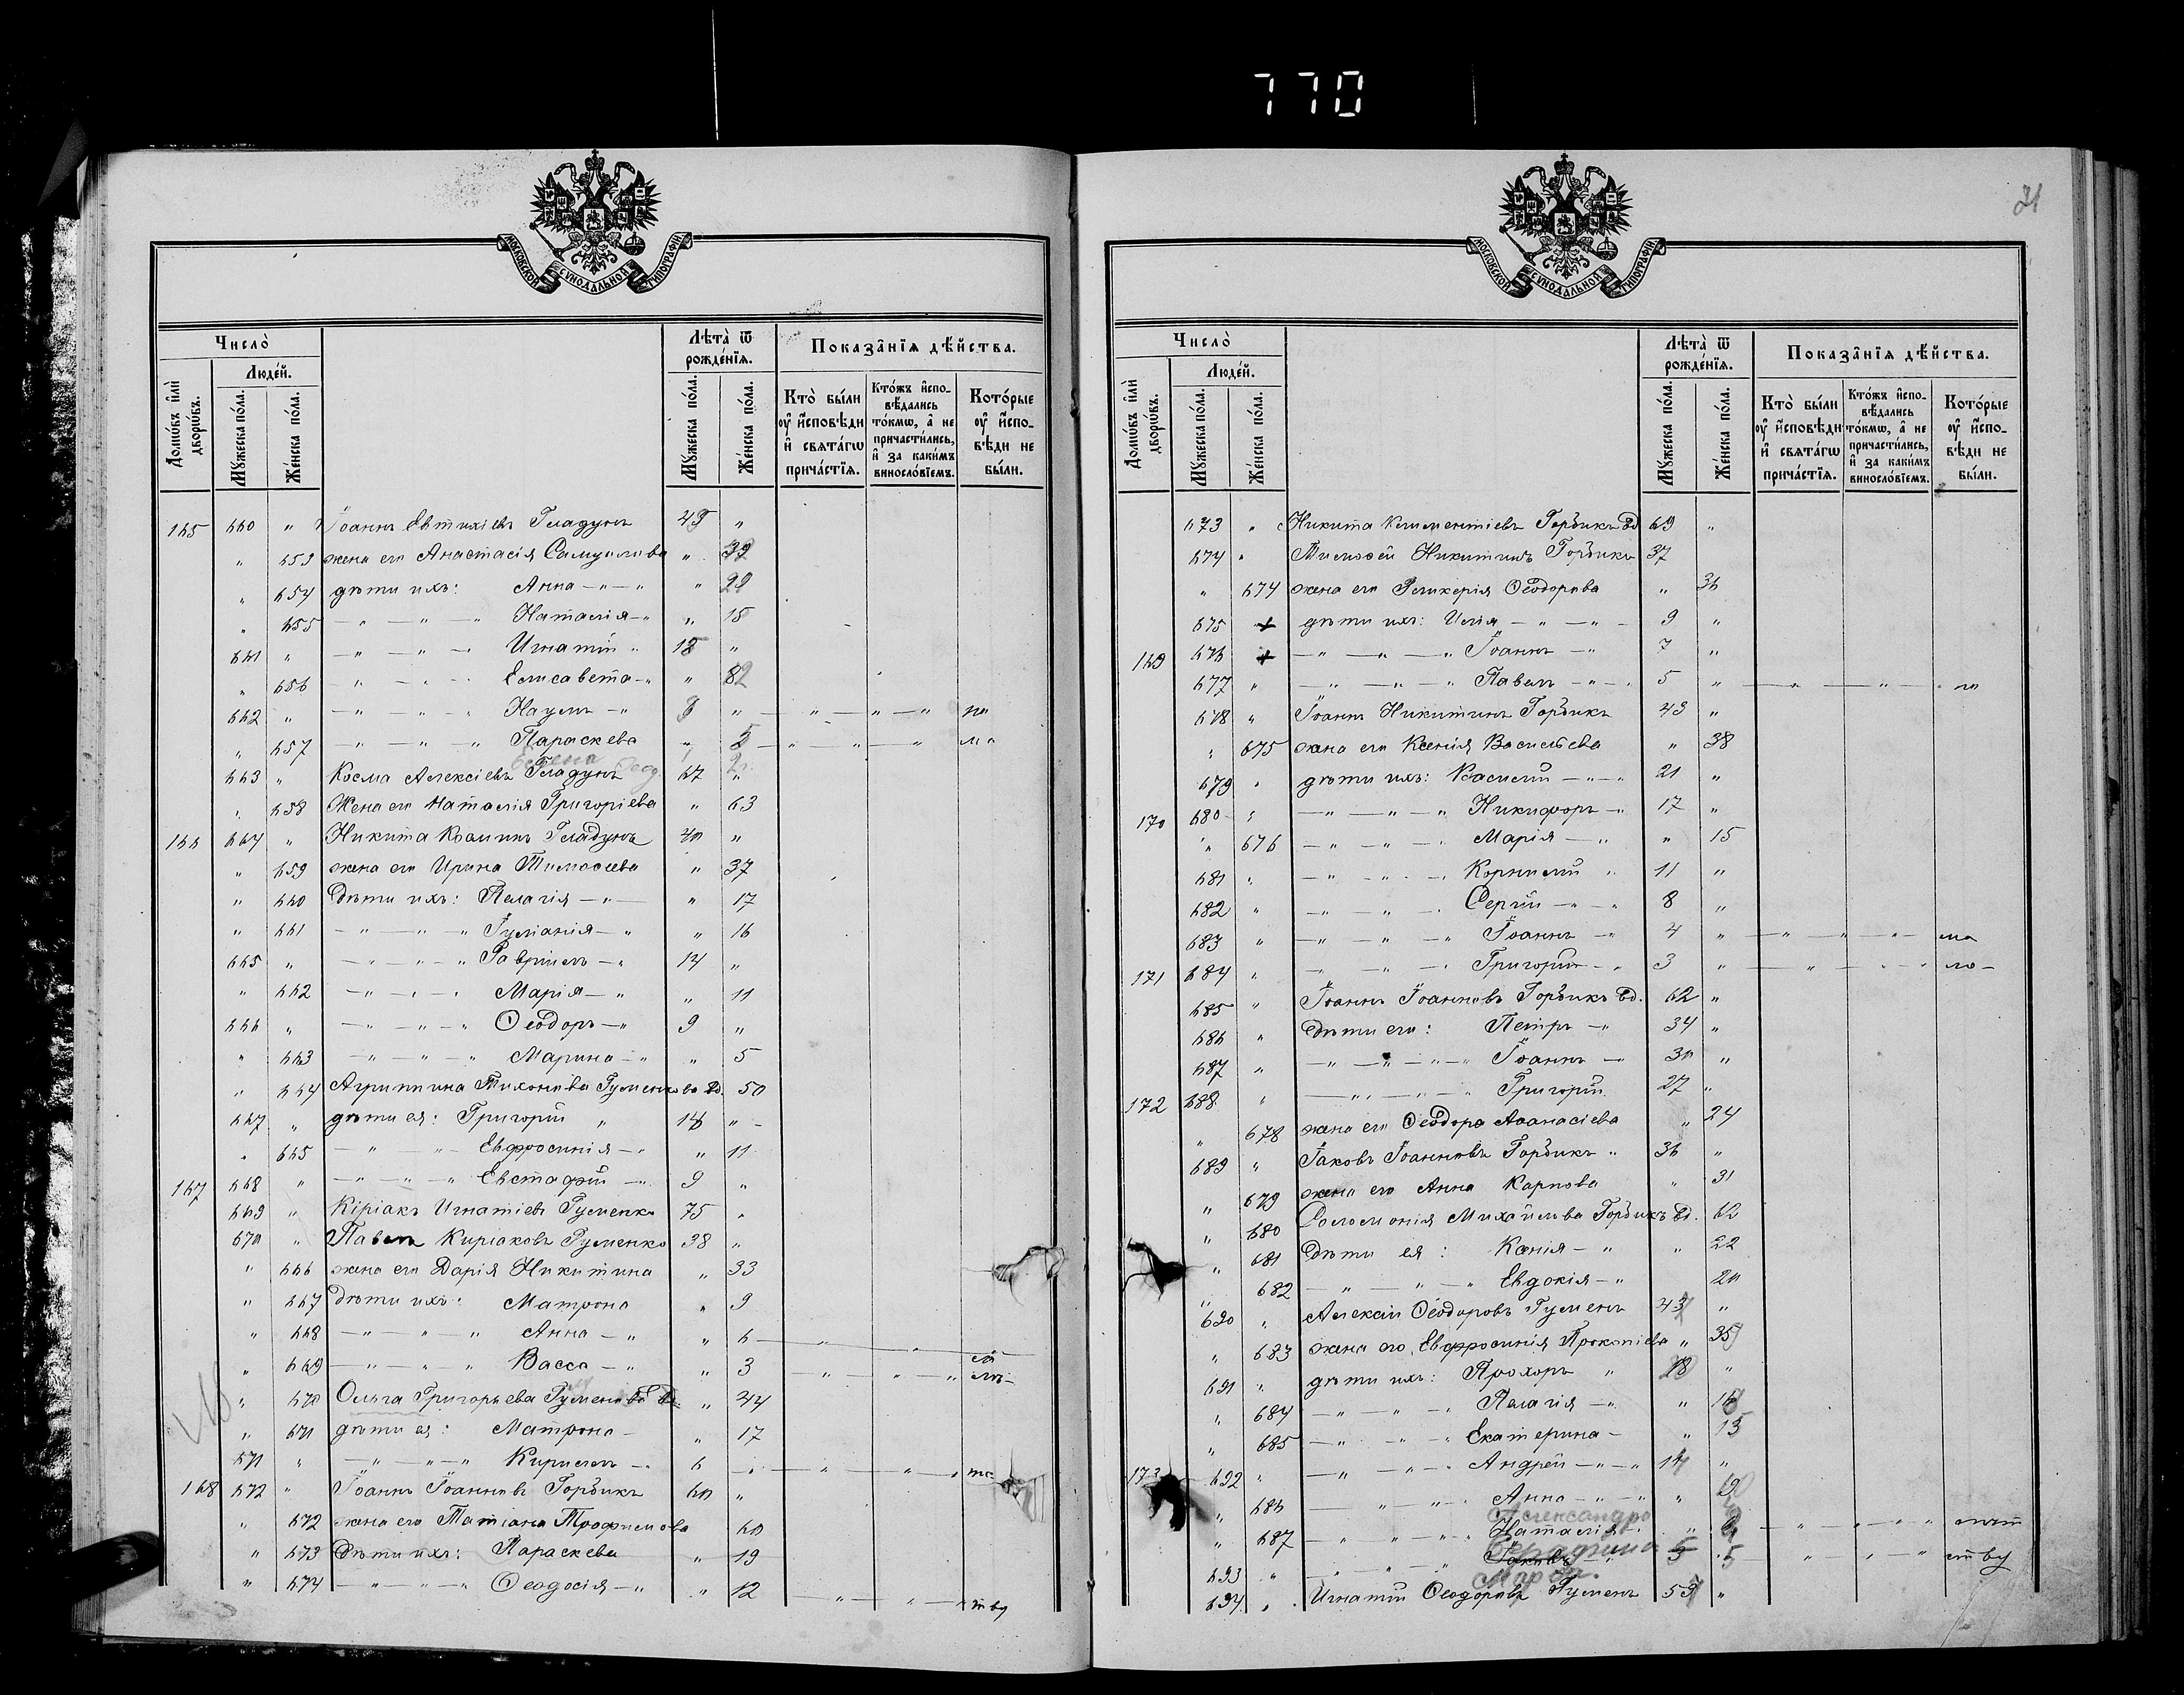 770
МОСКОВСКОЙ СѴНОДАЛЬНОЙ ТИПОГРАФІИ
Число̀
Людéй.
Домѡ́въ и҆лѝ дворѡ́въ.
Мꙋ́жеска по́ла.
Же́нска по́ла.
Лѣта̀ ѿ рожде́нїѧ.
Мꙋ́жеска по́ла.
Же́нска по́ла.
Показа̑нїѧ дѣ́йства.
Кто̀ бы́ли ᲂу҆ и҆́сповѣди и҆ свѧта́гѡ прича́стїѧ.
Кто́жъ и҆спо-вѣ́дались то́кмѡ, а҆ не причасти́лись, и҆ за каки́мъ винослóвїемъ.
Кото́рые ᲂу҆ и҆́спо-вѣди не бы́ли.
165 660 " Іоаннъ Евтихіевъ Гладунъ "
" 653 жена его Анастасія Самуилова " 39
" 654 дѣти ихъ: Анна — " — " "
" 655 — " — " — " Наталія — " " 15
661 " — " — " — " Игнатій " 18 "
" 656 — " — " — " Елисавета — " "
662 " — " — " — " Наумъ — " " — " — " — "
" 657 — " — " — " Параскева " — " — " — "
663 " Косма Алексіевъ Гладунъ 67 "
" 658 Жена его Наталія Григоріева " 63
166 664 " Никита Косминъ Гладунъ 40 "
" 659 жена его Ирина Тимофеева " 37
" 660 Дѣти ихъ: Пелагія — " — " 17
" 661 — " — " — " Іуліанія — " " 16
665 " — " — " — " Гавріилъ — " 14 "
" 662 — " — " — " Марія — " " 11
666 " — " — " — " Ѳеодоръ — " 9 "
" 663 — " — " — " Марина — " " 5
" 664 Агриппина Тихонова Гуменкова вд. 50
667 " дѣти ея: Григорій " "
" 665 — " — " — Евфросинія — " " 11
167 668 " — " — " — " Евстафій — " 9 "
669 " Киріакъ Игнатіевъ Гуменко 75 "
670 " Павелъ Киріаковъ Гуменко 38 "
" 666 жена его Дарія Никитина " 33
" 667 Дѣти ихъ: Матрона " 9
" 668 — " — " — " Анна — " " 6 — " — "
" 669 — " — " — " Васса — " " 3 — " — " — "
" 670 Ольга Григорьева вд. " 44
" 671 дѣти ея: Матрона — " 17
671 " — " — " — " Кириллъ — " 6 — " — " — "
168 672 " Іоаннъ Іоанновъ Горбикъ 60 "
" 672 жена его Татіана Трофимова 60
" 673 Дѣти ихъ: Параскева " 19
" 674 — " — " — " Ѳеодосія — " " 12 — " — " — тву
21
МОСКОВСКОЙ СѴНОДАЛЬНОЙ ТИПОГРАФІИ
Число̀
Людéй.
Домѡ́въ и҆лѝ дворѡ́въ.
Мꙋ́жеска по́ла.
Же́нска по́ла.
Лѣта̀ ѿ рожде́нїѧ.
Мꙋ́жеска по́ла.
Же́нска по́ла.
Показа̑нїѧ дѣ́йства.
Кто̀ бы́ли ᲂу҆ и҆́сповѣди и҆ свѧта́гѡ прича́стїѧ.
Кто́жъ и҆спо-вѣ́дались то́кмѡ, а҆ не причасти́лись, и҆ за каки́мъ винослóвїемъ.
Кото́рые ᲂу҆ и҆́спо-вѣди не бы́ли.
673 " Никита Климентіевъ Горбикъ вд 69 "
674 " Тимофей Никитинъ Горбикъ 37
" 674 жена его Гликерія Ѳеодорова " 36
675 + дѣти ихъ: Илія — " — " — 9 "
169 676 + — " — " — " Іоаннъ — " 7 "
677 " — " — " — " Павелъ — " — " 5 " — " — " — "
678 " Іоаннъ Никитинъ Горбикъ 43 "
" 675 жена его Ксенія Васильева " 38
679 " дѣти ихъ: Василій — " — " 21 "
170 680 " — " — " — " Никифоръ — " 17 "
" 676 — " — " — " Марія — " " 15
681 " — " — " — " Корнилій " 11 "
682 " — " — " — " Сергій — " — " 8 "
683 " — " — " — " Іоаннъ — " 4 " — " — " — " — ма
171 684 " — " — " — " Григорій — " 3 " — " — " — ло —
685 " Іоаннъ Іоанновъ Горбикъ вд. 62 "
686 " Дѣти его: Петръ — " 34 "
687 " — " — " — " — " Іоаннъ — " 30 "
172 688 " — " — " — " Григорій 27 "
" 678 жена его Ѳеодора Аѳанасіева " 24
689 " Іаковъ Іоанновъ Горбикъ " 36 "
" 679 жена его Анна Карпова " 31
" 680 Соломонія Михайлова Горбикъ вд. 62
" 681 Дѣти ея: Ксенія — " " 22
" 682 — " — " — " Евдокія — " 20
690 " Алексій Ѳеодоровъ Гуменъ "
" 683 жена его Евфросинія Прокопіева " 35
691 " дѣти ихъ: Прохоръ " "
" 684 — " — " — " Пелагія — " "
" 685 — " — " — " Екатерина — " 13
173 692 " — " — " — " Андрей — " — " "
" 686 — " — " — " Анна — " — " "
Александра
" 687 — " — " — " Наталія — " " — " — " — " —
Серафима
693 " — " — " — " Іаковъ 5 — " — " — " ству
Марфа.
694 " Игнатій Ѳеодоровъ Гуменъ "